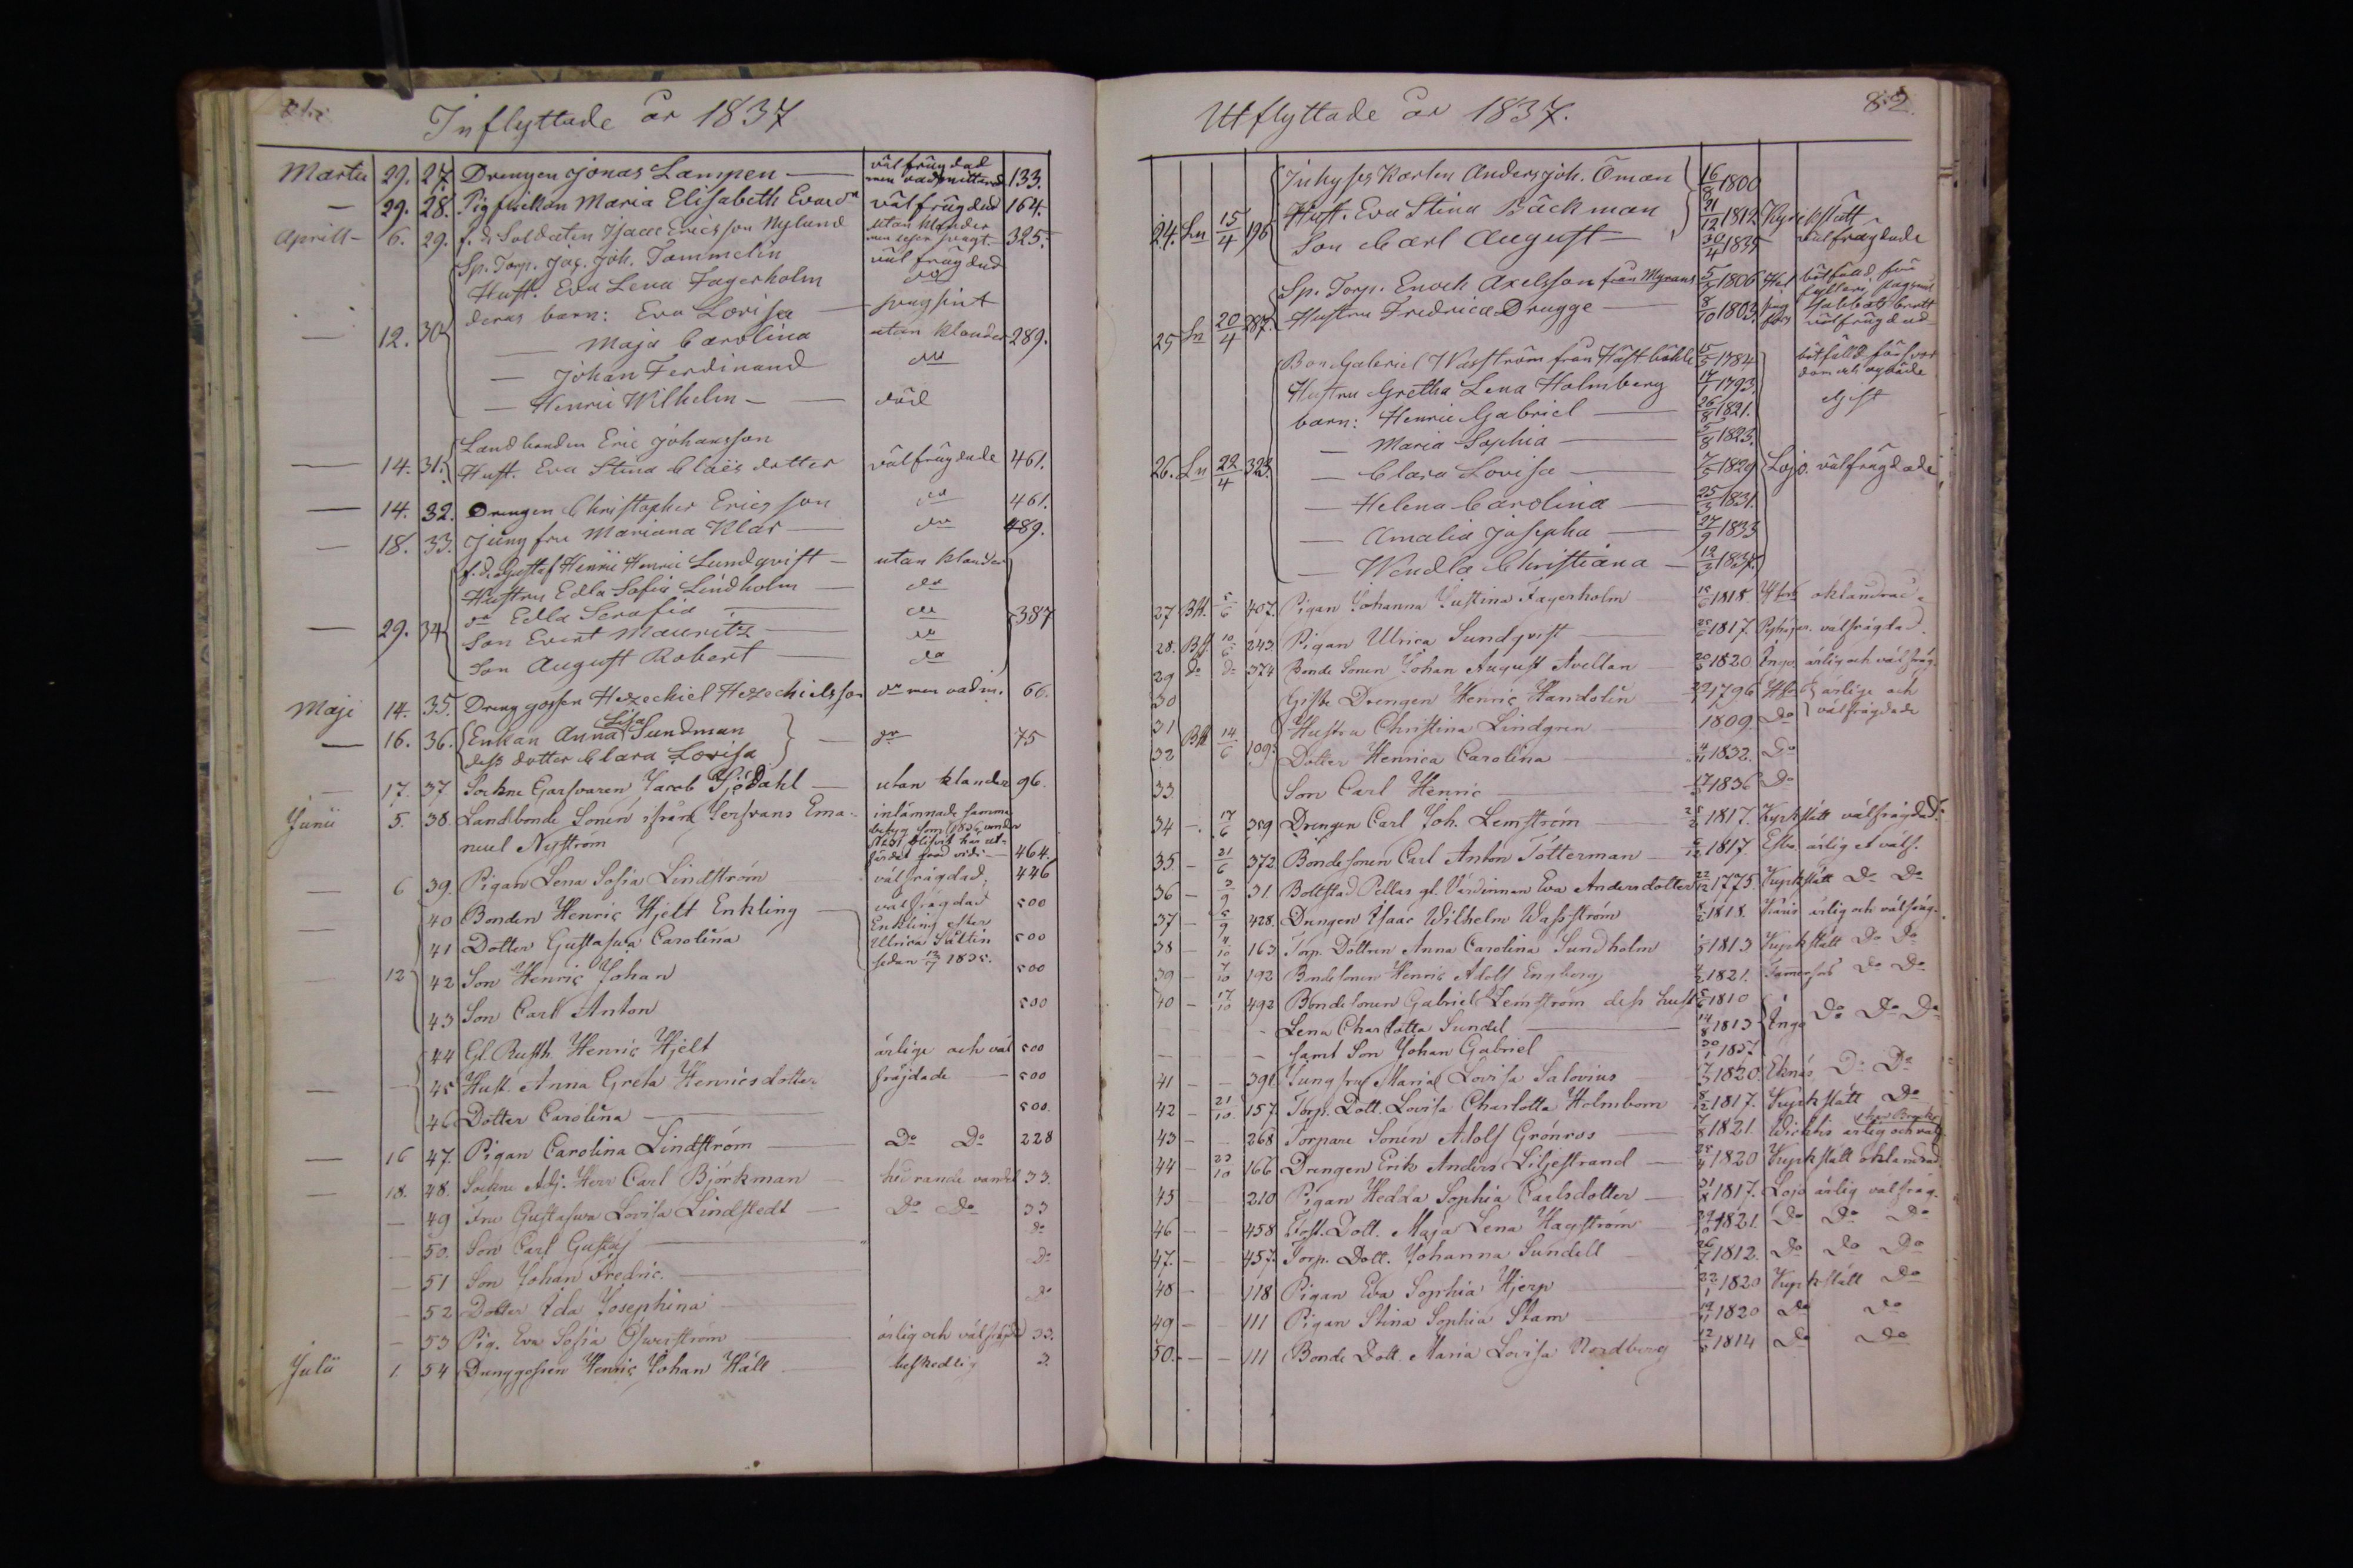 Inflyttade år 1837
Martii 29. 27. Drengen Jonas Lampen — välfrägdad 133.
— 29. 28. Pigflickan Maria Elisabeth välfrägdad 164.
Aprill 6. 29. f.d. Soldaten Isaac Ericsson Nylund utan klander 325.
Sp. Torp. Jac. Joh. Tammelin välfrägdad
Hust. Eva Lena Fagerholm do
deras barn: Eva Lovisa —
— 12. 30 — Maja Carolina utan klander 289.
— Johan Ferdinand do
— Henric Wilhelm — död
Landbonden Eric Johansson
— 14. 31. Hust. Eva Stina Claësdotter välfrägdade 461.
— 14. 32. Drengen Christopher Ericsson do 461.
— 18. 33. Jungfru Mariana Klas — do 489.
Henric Lundqvist — utan klander
Hustru Edla Sofia Lindholm — do
do Edla Serafia — do
— 29. 34 Son Evert Mauritz — do 387
Son August Robert — do
Maji 14. 35. Drenggossen Hezechiel Hezechielsson do men 66.
— 16. 36. Enkan Anna Lisa Sundman — do 75
dess dotter Clara Lovisa
— 17. 37 Sockne Garfvaren Jacob Sjödahl — utan klander 96.
Junii 5. 38. Landbonde Sonen ifrån Ema- inlämnade samma
nuel Nyström 464.
— 6 39. Pigan Lena Sofia Lindström välfrägdad. 446
— 40 Bonden Henric Hjelt Enkling välfrägdad 500
Enkling efter
41 Dotter Gustafva Carolina Ulrica 500
sedan 13/7 1835.
12 42 Son Henric Johan 500
43 Son Carl Anton 500
44 Gl. Rusth. Henric Hjelt ärlige och väl 500
— 45 Hust. Anna Greta Henricsdotter fräjdade — 500
46 Dotter Carolina — 500.
— 16 47. Pigan Carolina Lindström — Do Do 228
— 18. 48. Sockne Adj. Herr Carl Björkman — hedrande vandel 33.
— 49 Fru Gustafva Lovisa Lindstedt — Do Do 33
— 50. Son Carl Gustaf — Do
— 51 Son Johan Fredric. — Do
— 52 Dotter Ida Josephina — Do
— 53 Pig. Eva Sofia — ärlig och välfräjd 33.
Julii 1. 54 Drenggossen Henric Johan Häll — beskedlig 3.
Utflyttade år 1837. 82.
Inhyses Karlen Anders Joh. Öman 16/8 1800
24. Ln 15/4 196 Hust. Eva Stina Bäckman 21/12 1812 Kyrkslätt
Son Carl August — 30/4 1835 välfrägdade
Sp. Torp. Enoch Axelsson från Myrans 5/5 1806
25 Ln 20/4 287. Hustru Fredrica Drugge — 8/10 1803. välfrägdad
Bon. Gabriel Wasström från Hästböhle 15/5 1784 bötfälld för
Hustru Gretha Lena Holmberg 17/1 1793.
barn: Henric Gabriel — 26/8 1821.
— Maria Sophia — 5/8 1823.
26. Ln 22/4 323. — Clara Lovisa — 7/5 1829 Lojo. välfrägdade
— Helena Carolina — 25/3 1831.
— Amalia Josepha — 27/9 1833
— Wendla Christiana — 12/3 1837.
27 BH. 5/6 407. Pigan Johanna Justina Fagerholm 1818. oklandrad.
28. BH. 10/6 243 Pigan Ulrica Sundqvist — 1817. välfrägdad.
29 Do Do 374 Bonde Sonen Johan August Avellan — 1820. Ingo ärlig och välfräg.
30 Gifte Drengen Henric Handolin — 1796 ärlige och
31 Hustru Christina Lindgren — 1809. Do välfrägdade
32 BH 14/6 109. Dotter Henrica Carolina — 1832. Do
33. Son Carl Henric — 1836 Do
34 — 17/6 389 Drengen Carl Joh. Lemström — 1817. Kyrkslätt välfrägdad.
35. — 21/6 372. Bondesonen Carl Anton Tötterman — 1817. Esbo. ärlig et välf.
36 — 3/9 31. Boltstad Pellas gl. Värdinnan Eva Andersdotter 1775. Kyrkslätt Do Do
37 — 5/9 428. Drengen Isaac Wilhelm Wasström 1818. ärlig och välfräg.
38 — 4/10 163. Torp. Dottren Anna Carolina Sundholm 1813 Kyrkslätt Do Do
39 — 7/10 192 Bondesonen Henric Adolf Engberg 1821. Do Do
40 — 17/10 492 Bondesonen Gabriel Lemström dess hust 1810
— Lena Charlotta Sundel — 14/8 1813 Ingo Do Do Do
— samt Son Johan Gabriel 1837
41 — — 391. Jungfru Maria Lovisa Salovius 1820 Ekenäs Do Do
42 — 21/10 157. Torp. Dott. Lovisa Charlotta Holmbom 1817. Kyrkslätt Do
43 — — 268 Torpare Sonen Adolf Grönros — 1821. Wichtis ärlig och välf
44 — 23/10 166 Drengen Erik Anders Liljestrand — 1820 Kyrkslätt oklandrad
45 — — 210 Pigan Hedda Sophia Carlsdotter — 1817. Lojo ärlig välfräg.
46 — — 458 Dott. Maja Lena Hagström 1821. Do Do Do
47. — — 457. Torp. Dott. Johanna Sundell 1812. Do Do Do
48 — — 118 Pigan Eva Sophia Hjerp 1820 Kyrkslätt Do
49 — — 111 Pigan Stina Sophia Stam 1820 Do Do
50. — — 111 Bonde Dott. Maria Lovisa Nordberg 1814 Do Do